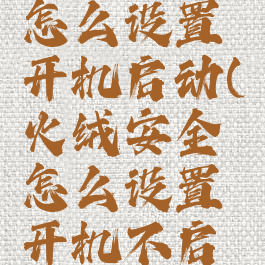 怎么设置
开机启动(
火绒安全
怎么设置
开机不启